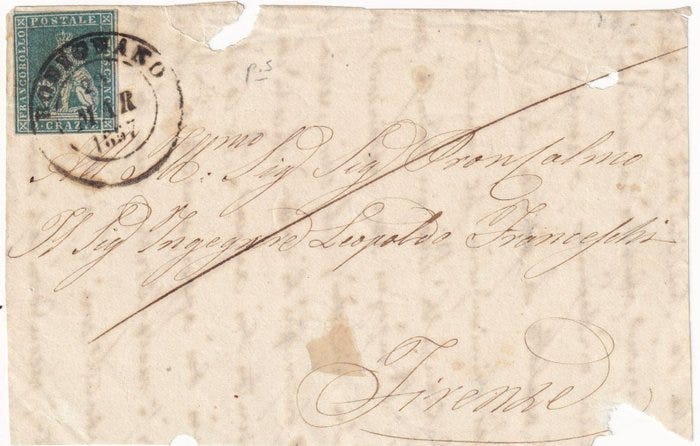 FRANCOBOLLO
POSTALE
TOSCANO
CRAZIE
MAR
1857
p.s
All' Ill: mo Sig Sig Pron Colmo
Il Sig Ingegnre Leopoldo Franceschi
Firenze